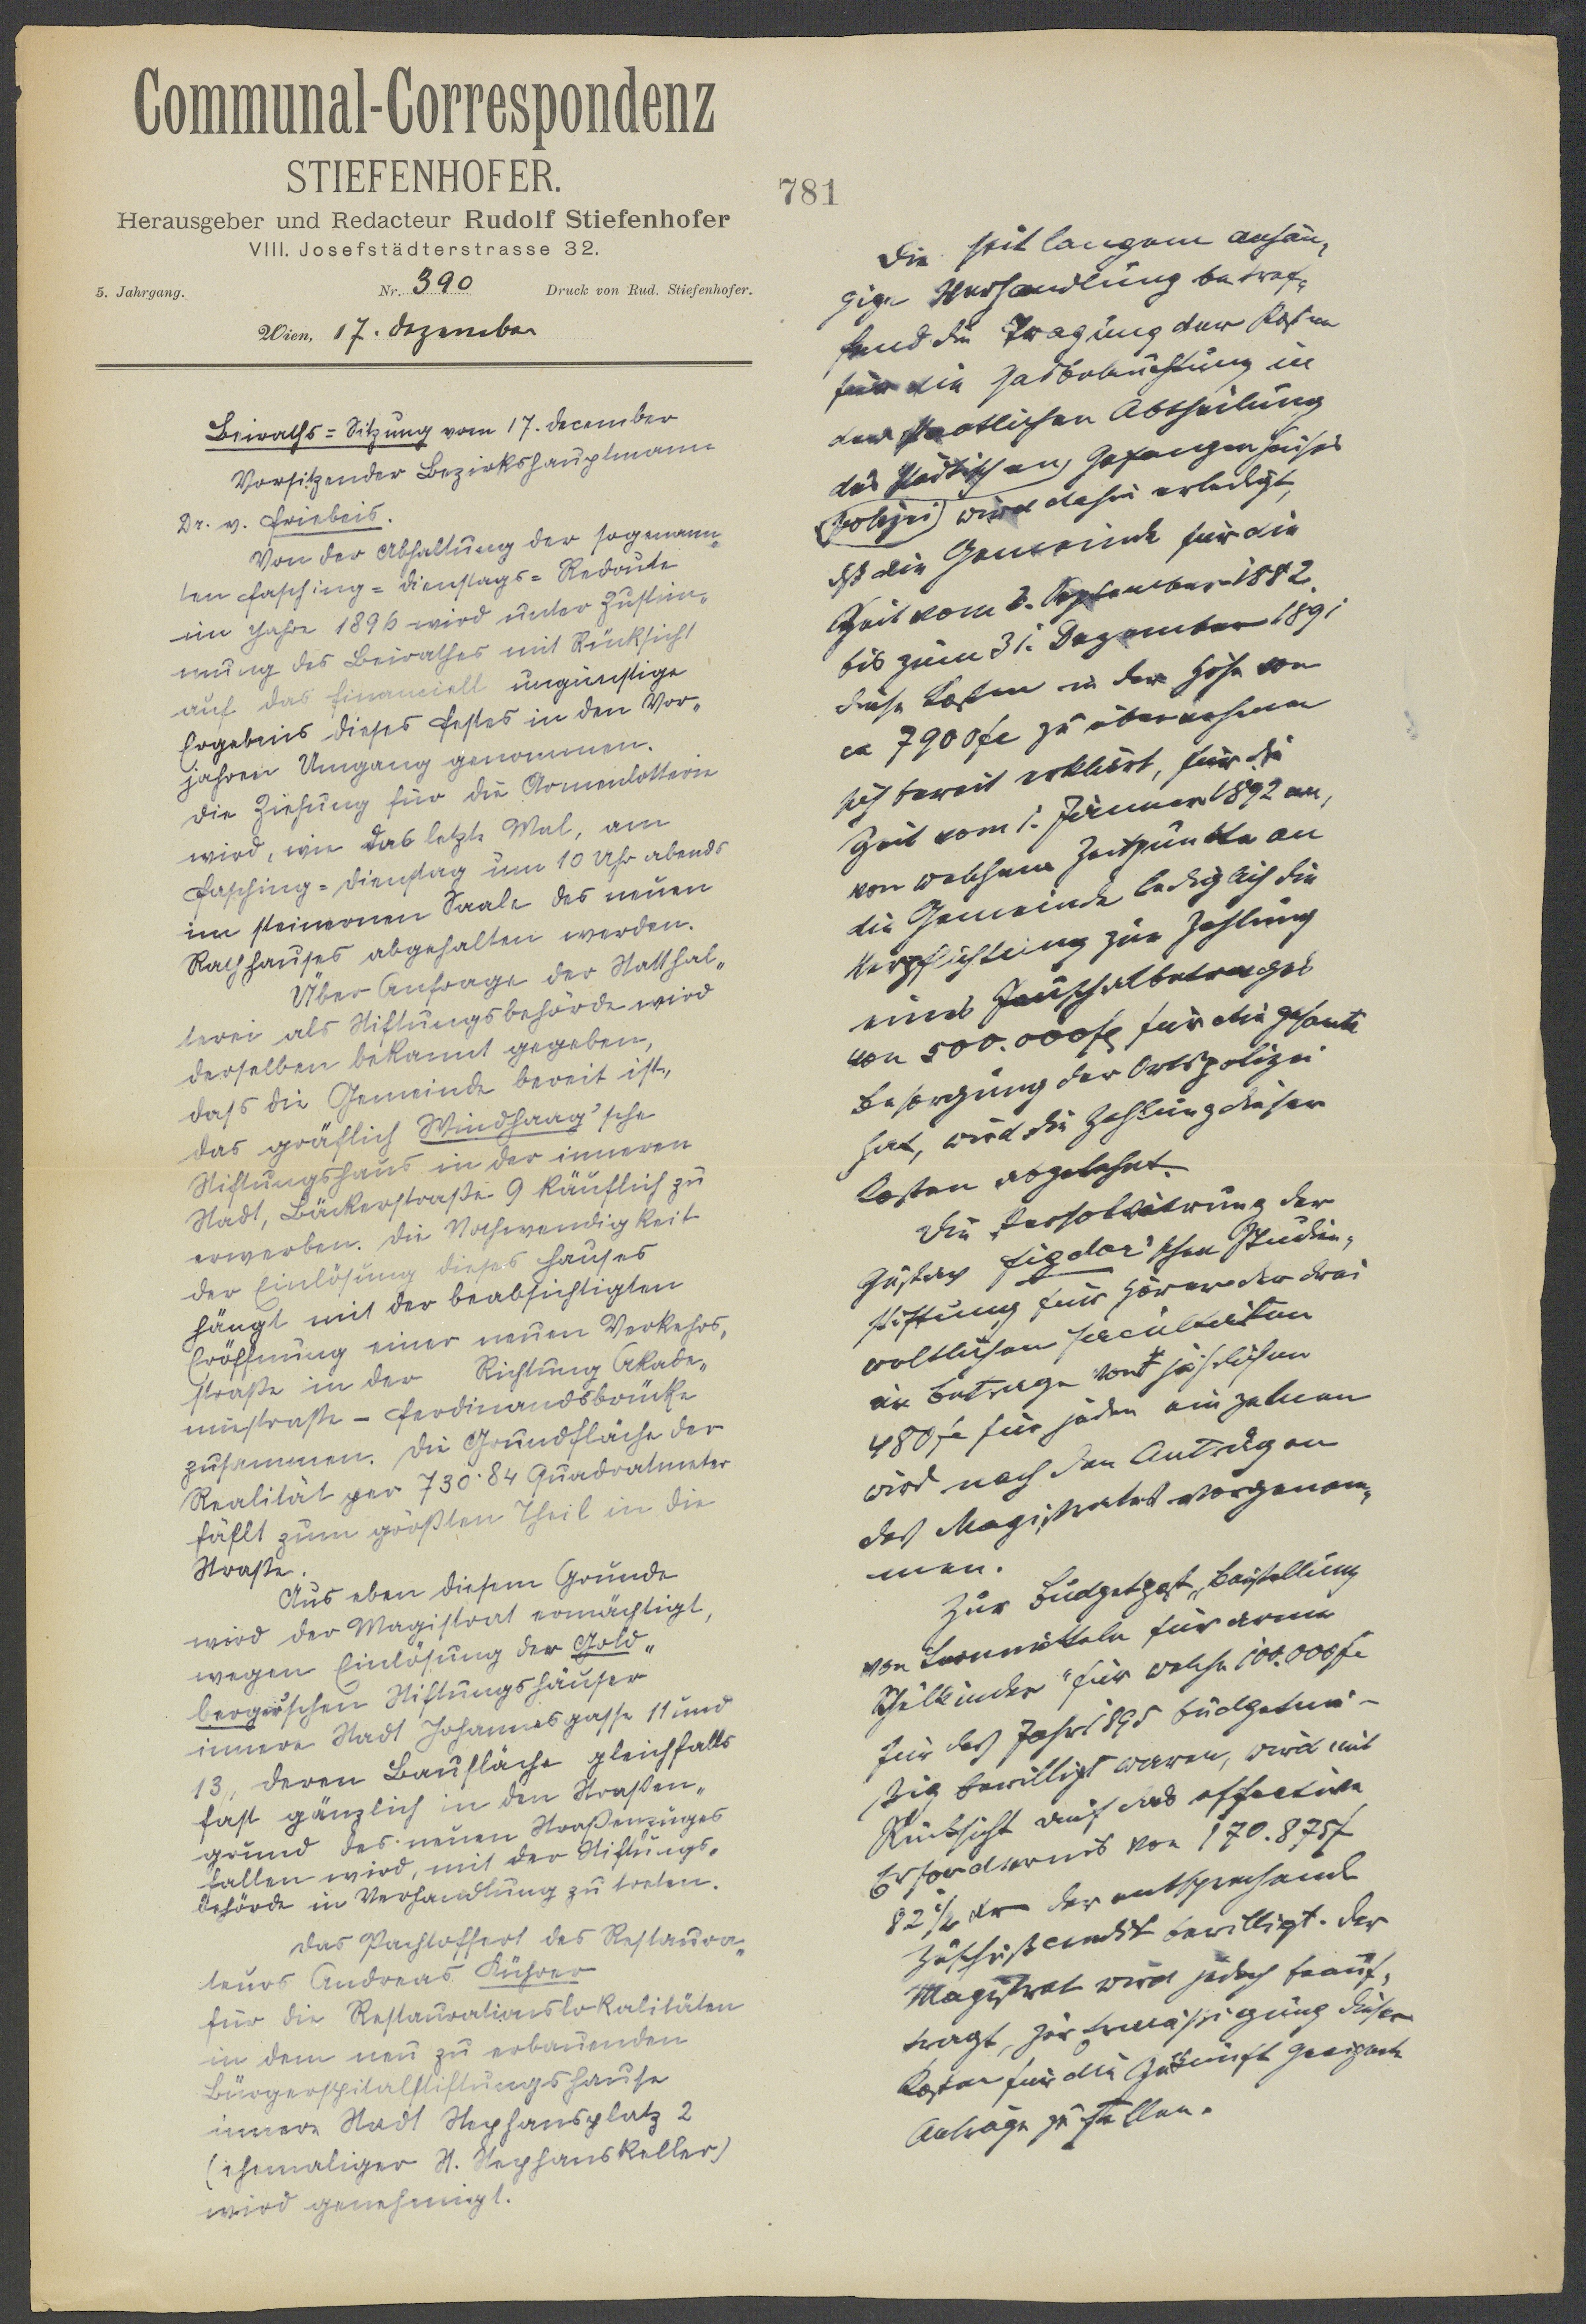 Communal-Correspondenz
STIEFENHOFER.
Herausgeber und Redacteur Rudolf Stiefenhofer
VIII. Josefstädterstrasse 32.
5. Jahrgang. Nr. 390 Druck von Rud. Stiefenhofer.
Wien, 17. Dezember
Beiraths=Sitzung vom 17. December
Vorsitzender Bezirkshauptmann
Dr. v. Friebeis.
Von der Abhaltung der sogenann„
ten Fasching=Dienstags=Redoute
im Jahre 1896 wird unter Zustim„
mung des Beirathes mit Rücksicht
auf das financiell ungünstige
Ergebnis dieses Festes in den Vor„
jahren Umgang genommen.
Die Ziehung für die Armenlotterie
wird, wie das letzte Mal, am
Fasching=Dienstag um 10 Uhr abends
im steinernen Saale des neuen
Rathhauses abgehalten werden.
Über Anfrage der Statthal„
terei als Stiftungsbehörde wird
derselben bekannt gegeben,
dass die Gemeinde bereit ist,
das gräflich Windhaag'sche
Stiftungshaus in der inneren
Stadt, Bäckerstraße 9 käuflich zu
erwerben. Die Nothwendigkeit
der Einlösung dieses Hauses
hängt mit der beabsichtigten
Eröffnung einer neuen Verkehrs„
straße in der Richtung Akade„
miestraße - Ferdinandsbrücke
zusammen. Die Grundfläche der
Realität per 730·84 Quadratmeter
fällt zum größten Theil in die
Straße.
Aus eben diesem Grunde
wird der Magistrat ermächtigt,
wegen Einlösung der Gold„
berg'schen Stiftungshäuser
innere Stadt Johannesgasse 11 und
13, deren Baufläche gleichfalls
fast gänzlich in den Straßen„
grund des neuen Straßenzuges
fallen wird, mit der Stiftungs„
behörde in Verhandlung zu treten.
Das Pachtoffert des Restaura„
teurs Andreas Kührer
für die Restaurationslokalitäten
in dem neu zu erbauenden
Bürgerspitalstiftungshause
innere Stadt Stephansplatz 2
(ehemaliger St. Stephanskeller)
wird genehmigt.
781
Die seit langem anhän„
gige Verhandlung betref„
fend die Tragung der Kosten
für die Gasbeleuchtung in
der staatlichen Abtheilung
des städtischen Gefangenhauses
(Polizei) wird dahin erledigt,
dß die Gemeinde für die
Zeit vom 3. September 1882
bis zum 31. Dezember 1891
diese Kosten in der Höhe von
ca 7900 fl zu übernehmen
sich bereit erklärt, für die
Zeit vom 1. Jänner 1892 an,
von welchem Zeitpunkte an
die Gemeinde lediglich die
Verpflichtung zur Zahlung
eines Pauschalbetrages
von 500.000 fl für die gesamte
Besorgung der Ortspolizei
hat, wird die Zahlung dieser
Kosten abgelehnt.
Die Persolvierung der
Gustav Figdor'schen Studien„
stiftung für Hörer der drei
weltlichen Facultäten
im Betrage von jährlichen
480 fl für jeden einzelnen
wird nach den Anträgen
des Magistrates vorgenom„
men.
Zur Budgetpost „Beistellung
von Lernmitteln für arme
Schulkinder" für welche 100.000 fl
für das Jahr 1895 budgetmä-
ßig bewilligt waren, wird mit
Rücksicht auf das effective
Erfordernis von 170.875 f
82½ kr der entsprechende
Zuschußcredit bewilligt. Der
Magistrat wird jedoch beauf„
tragt, zur Ermäßigung dieser
Kosten für die Zukunft geeignete
Anträge zu stellen.